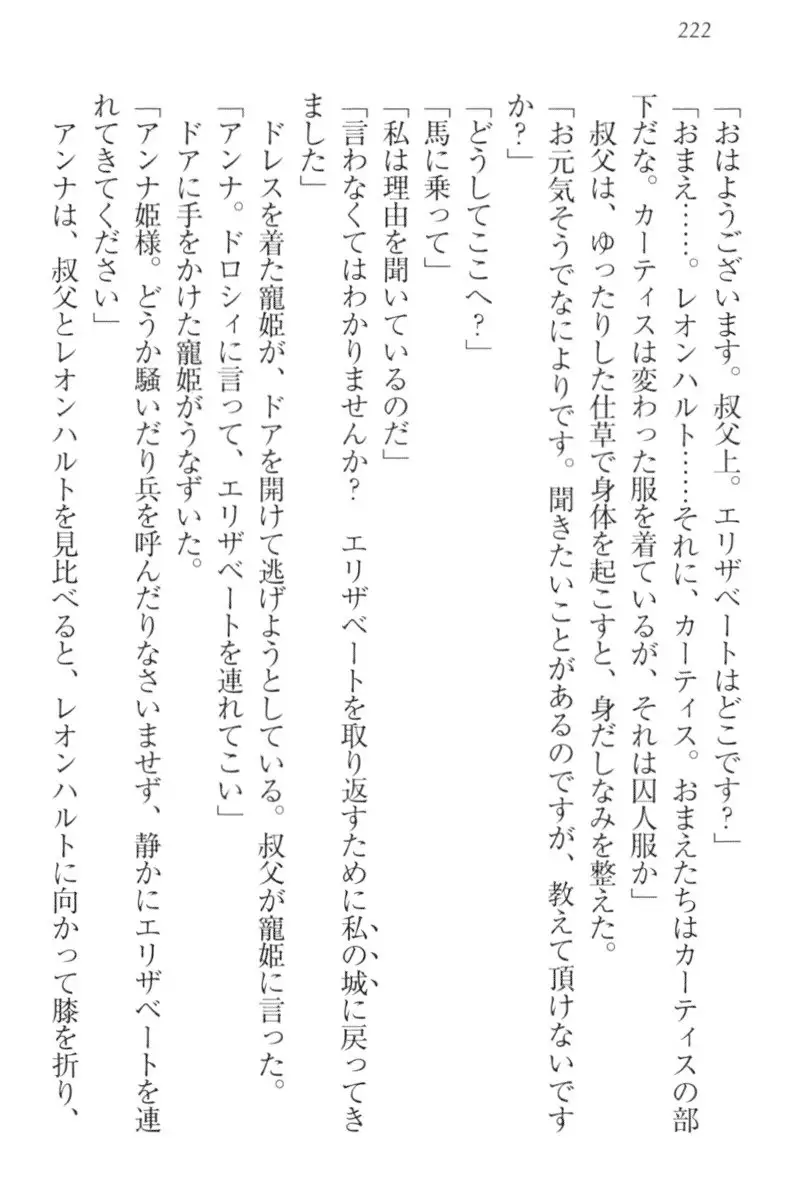 222
「おはようございます。叔父上。エリザベートはどこです？」
「おまえ……。レオンハルト……それに、カーティス。おまえたちはカーティスの部
下だな。カーティスは変わった服を着ているが、それは囚人服か」
叔父は、ゆったりした仕草で身体を起こすと、身だしなみを整えた。
「お元気そうでなによりです。聞きたいことがあるのですが、教えて頂けないです
か？」
「どうしてここへ？」
「馬に乗って」
「私は理由を聞いているのだ」
「言わなくてはわかりませんか？　エリザベートを取り返すために私の城に戻ってき
ました」
ドレスを着た寵姫が、ドアを開けて逃げようとしている。叔父が寵姫に言った。
「アンナ。ドロシィに言って、エリザベートを連れてこい」
ドアに手をかけた寵姫がうなずいた。
「アンナ姫様。どうか騒いだり兵を呼んだりなさいませず、静かにエリザベートを連
れてきてください」
アンナは、叔父とレオンハルトを見比べると、レオンハルトに向かって膝を折り、